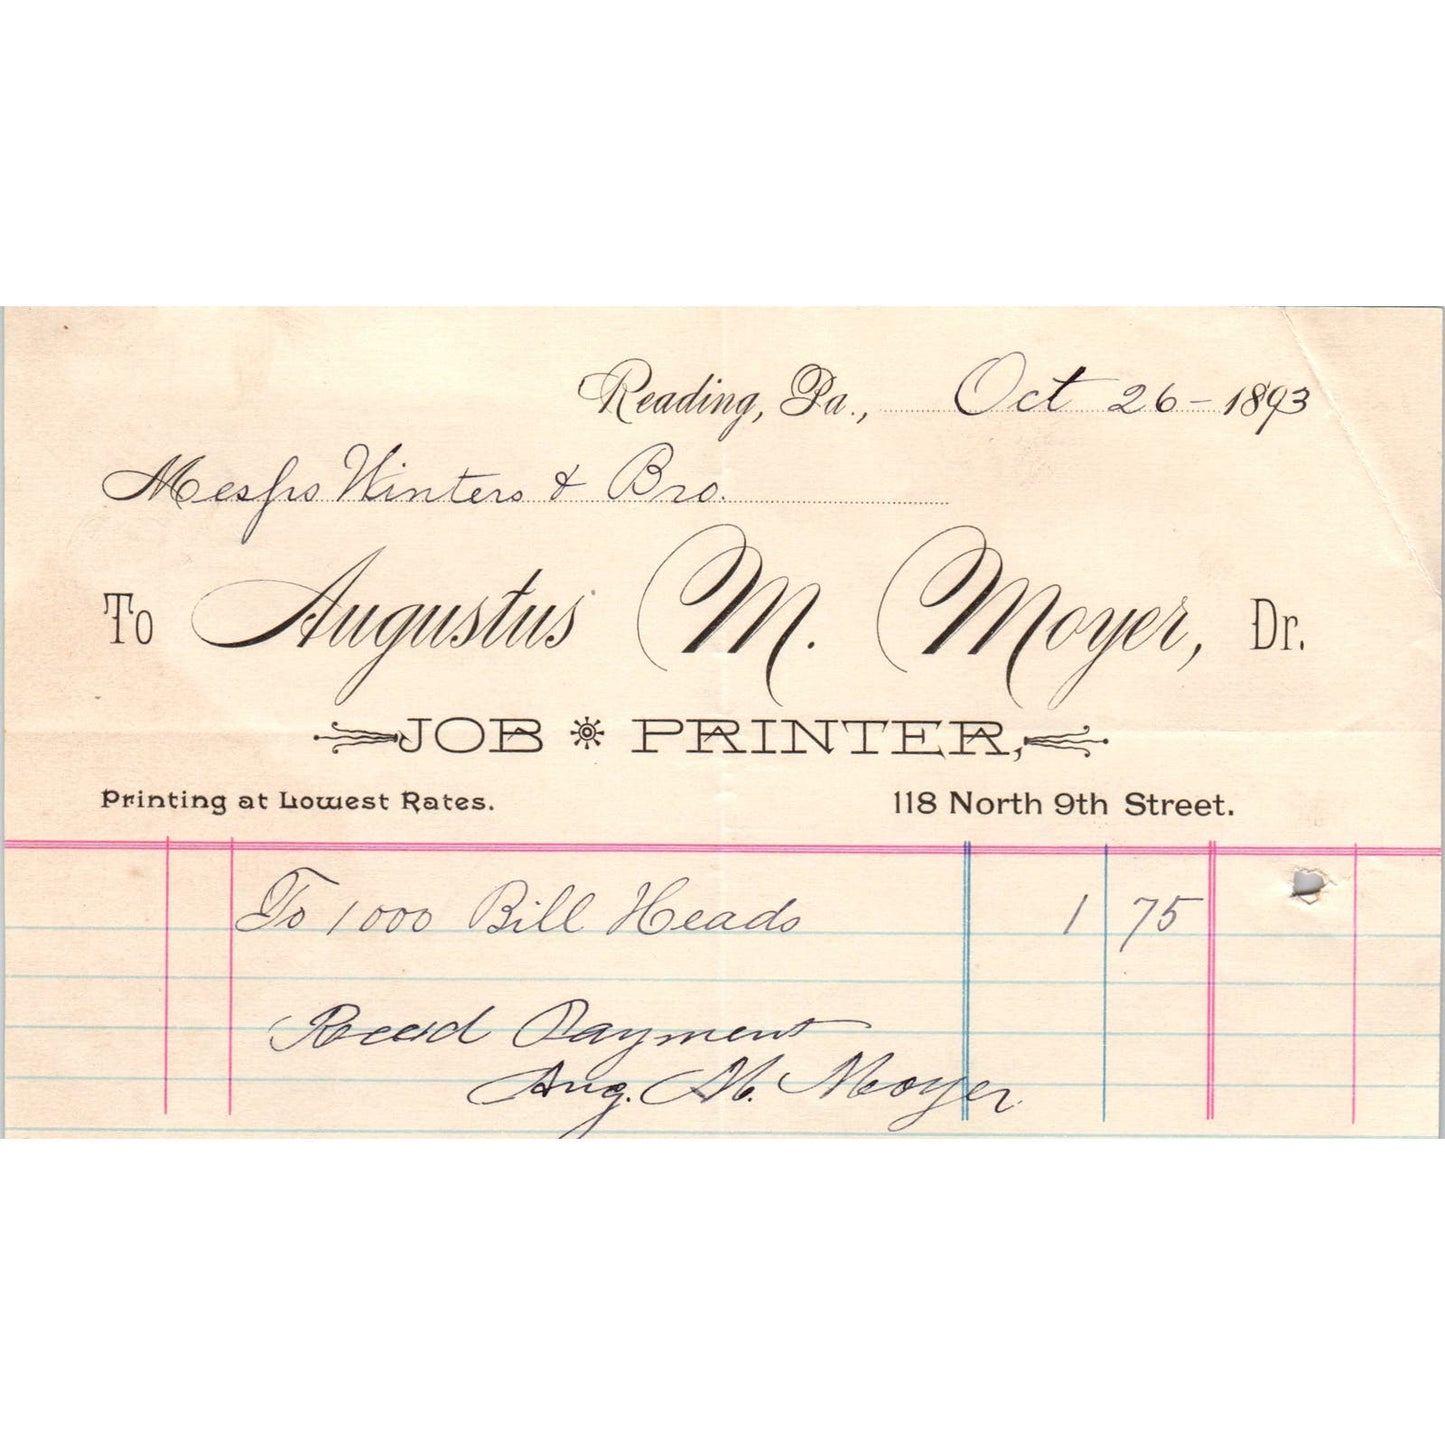 Reading, Pa., Oct 26 - 1893
Messrs Winters & Bro.
To Augustus M. Moyer, Dr.
JOB PRINTER,
Printing at Lowest Rates. 118 North 9th Street.
To 1000 Bill Heads 1 75
Recd Payment
Aug. M. Moyer